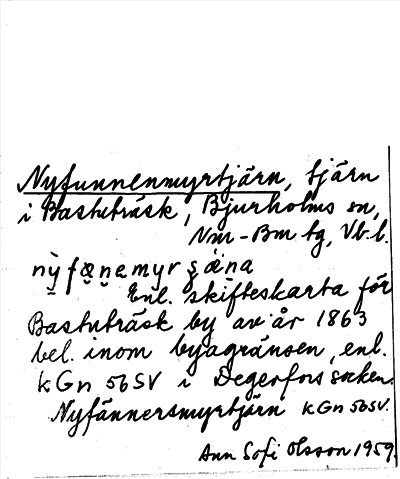 Nyfunnenmyrtjärn, tjärn
i Bastuträsk, Bjurholms sn,
Nm-Bm tg, Vb.l.
Enl. skifteskarta för
Bastuträsk by av år 1863
bel. inom byagränsen, enl.
kGn 56SV i Degerfors socken.
Nyfännersmyrtjärn kGn 56SV.
Ann Sofi Olsson 1959.